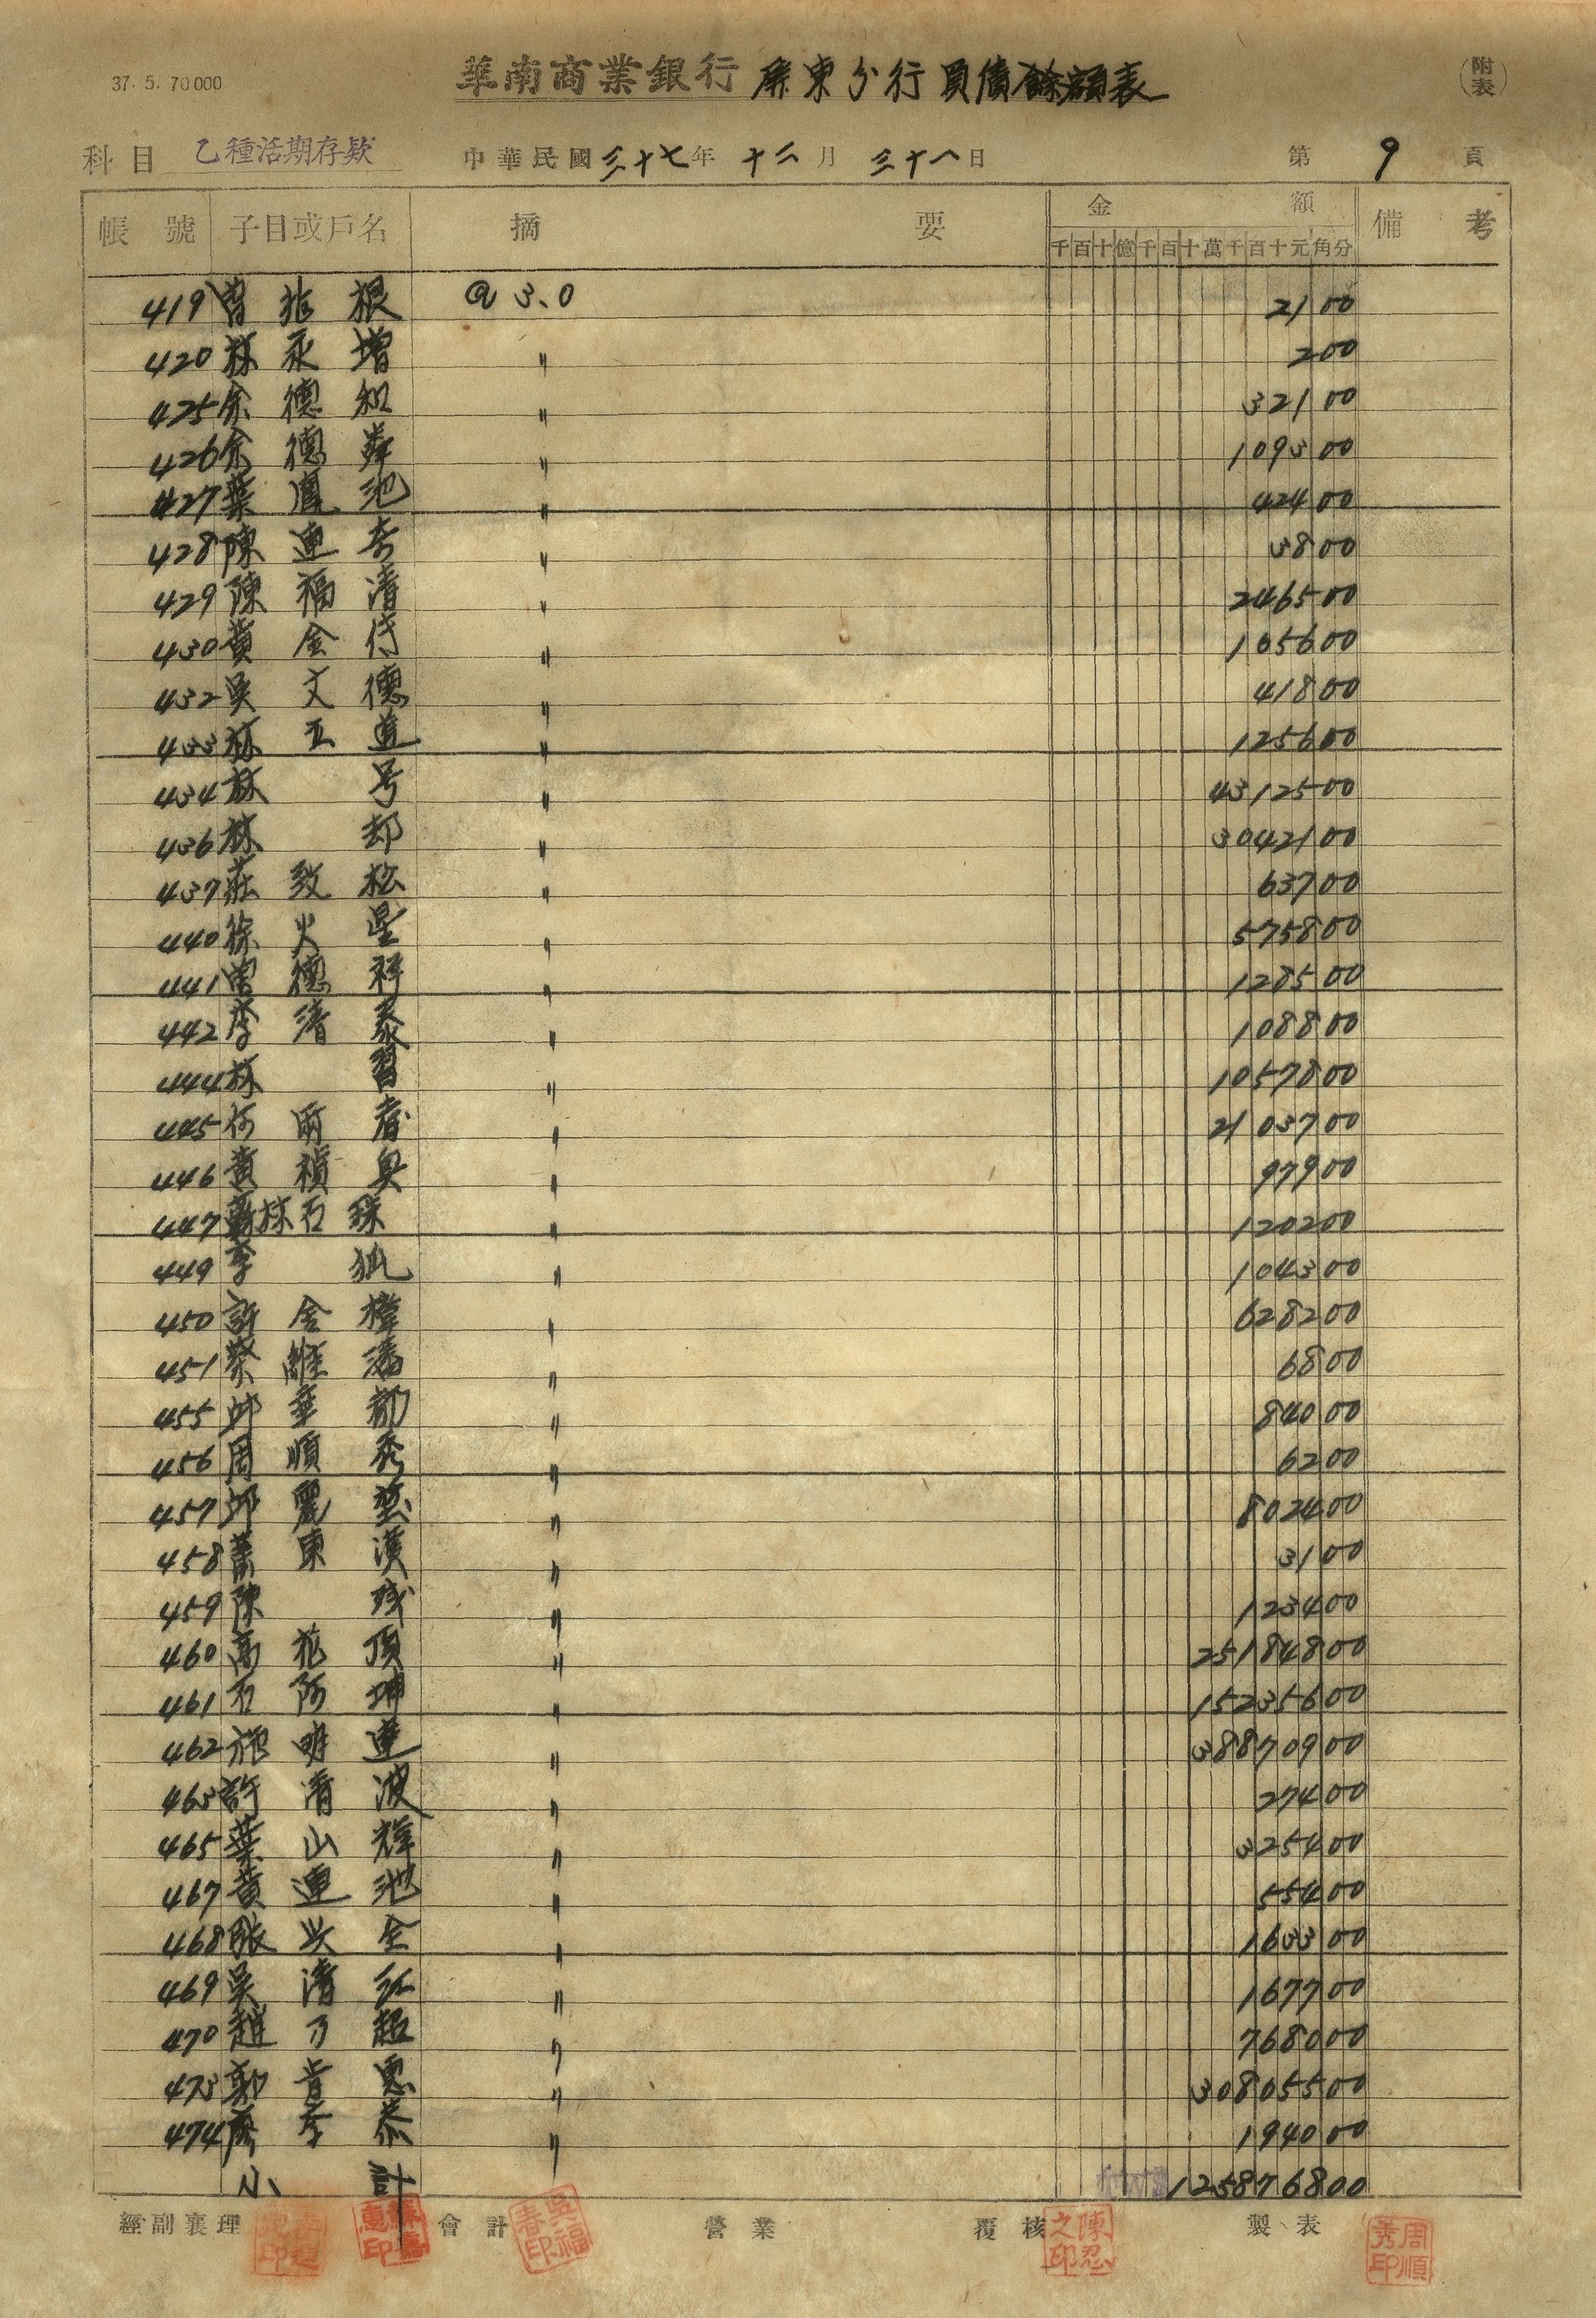 37. 5. 70000
華南商業銀行 屏東分行負債餘額表
(附表)
科目 乙種活期存款 中華民國三十七年 十二月 三十一日 第 9 頁
帳號 子目或戶名 摘要 金額 備考
千百十億千百十萬千百十元角分
419 曾 根 @ 3.0 2100
420 林永增 〃 200
425 余德和 〃 32100
426 余德 〃 109300
427 葉鳳池 〃 42400
428 陳連 〃 3800
429 陳福清 〃 246500
430 黃金 〃 105600
432 吳文德 〃 41800
433 林五道 〃 125600
434 林号 〃 4312500
436 林却 〃 3042100
437 莊致松 〃 63700
440 徐火星 〃 575800
441 曾德祥 〃 128500
442 李清泰 〃 108800
444 林習 〃 1057800
445 何 〃 2103700
446 黃禎 〃 97900
447 林石珠 〃 120200
449 李 〃 104300
450 許金樟 〃 628200
451 蔡維藩 〃 6800
455 邱華郡 〃 84000
456 周順秀 〃 6200
457 邱麗 〃 802400
458 東漢 〃 3100
459 陳 〃 123400
460 高 頂 〃 25184800
461 石阿坤 〃 15235600
462 施明連 〃 38870900
463 許清波 〃 27400
465 葉山輝 〃 325400
467 黃連池 〃 55400
468 張 全 〃 163300
469 吳清江 〃 167700
470 趙乃超 〃 768000
473 郭肯恩 〃 30805500
474 廖李恭 〃 194000
小計 125876800
經副襄理 會計 營業 覆核 製表
吳福春印
陳忍之印
周順秀印